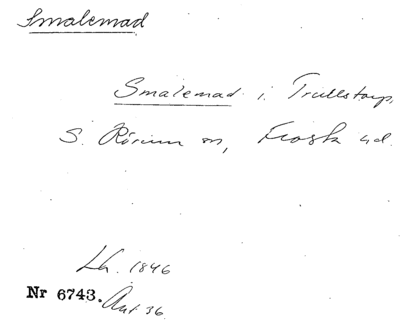 Smalemad
Smalemad i Trullstorp,
S. Rörum sn, Frosta hd.
Lh. 1846
Nr 6743. Aut 36